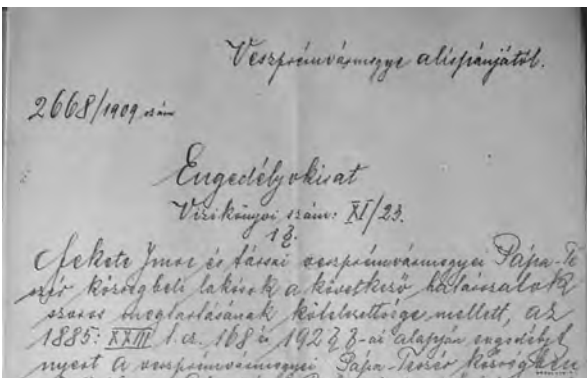 Veszprémvármegye alispánjától.
2668/1909 szám
Engedélyokirat
Vizikönyvi szám: XI/23.
1 §.
Fekete Imre és társai veszprémvármegyei Pápa-Te
szér községbeli lakósok a következő határozatok
szoros megtartásának kötelezettsége mellett, az
1885: XXIII t. cz. 168 és 192 § §-ai alapján engedélyt
nyert a veszprémvármegyei Pápa-Teszér községben